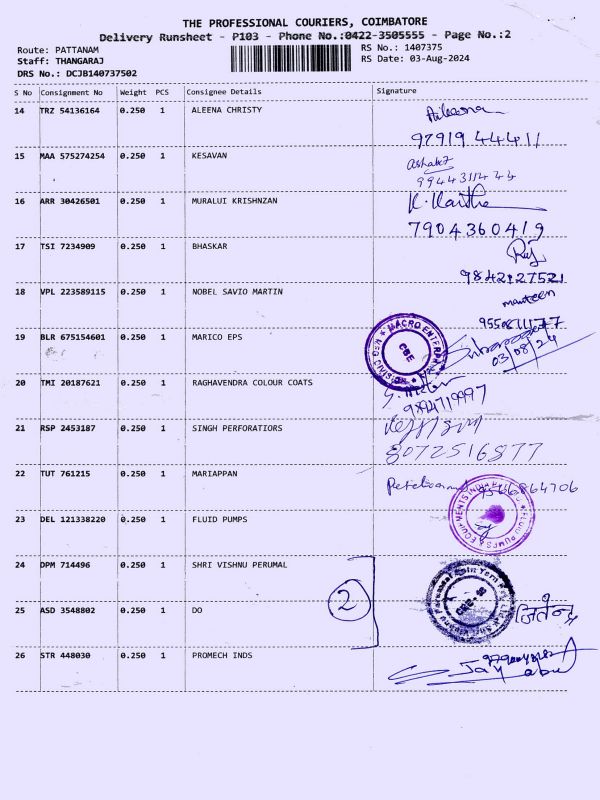 THE PROFESSIONAL COURIERS, COIMBATORE
Delivery Runsheet - P103 - Phone No.:0422-3505555 - Page No.:2
Route: PATTANAM RS No.: 1407375
Staff: THANGARAJ RS Date: 03-Aug-2024
DRS No.: DCJB140737502
S No Consignment No Weight PCS Consignee Details Signature
14 TRZ 54136164 0.250 1 ALEENA CHRISTY
97919 44411
15 MAA 575274254 0.250 1 KESAVAN
16 ARR 30426501 0.250 1 MURALUI KRISHNZAN
7904360419
17 TSI 7234909 0.250 1 BHASKAR
9842127521
18 VPL 223589115 0.250 1 NOBEL SAVIO MARTIN
19 BLR 675154601 0.250 1 MARICO EPS
03/08/24
20 TMI 20187621 0.250 1 RAGHAVENDRA COLOUR COATS
21 RSP 2453187 0.250 1 SINGH PERFORATIORS
8072516877
22 TUT 761215 0.250 1 MARIAPPAN
23 DEL 121338220 0.250 1 FLUID PUMPS
24 DPM 714496 0.250 1 SHRI VISHNU PERUMAL
25 ASD 3548802 0.250 1 DO 2 जितेन्द्र
26 STR 448030 0.250 1 PROMECH INDS